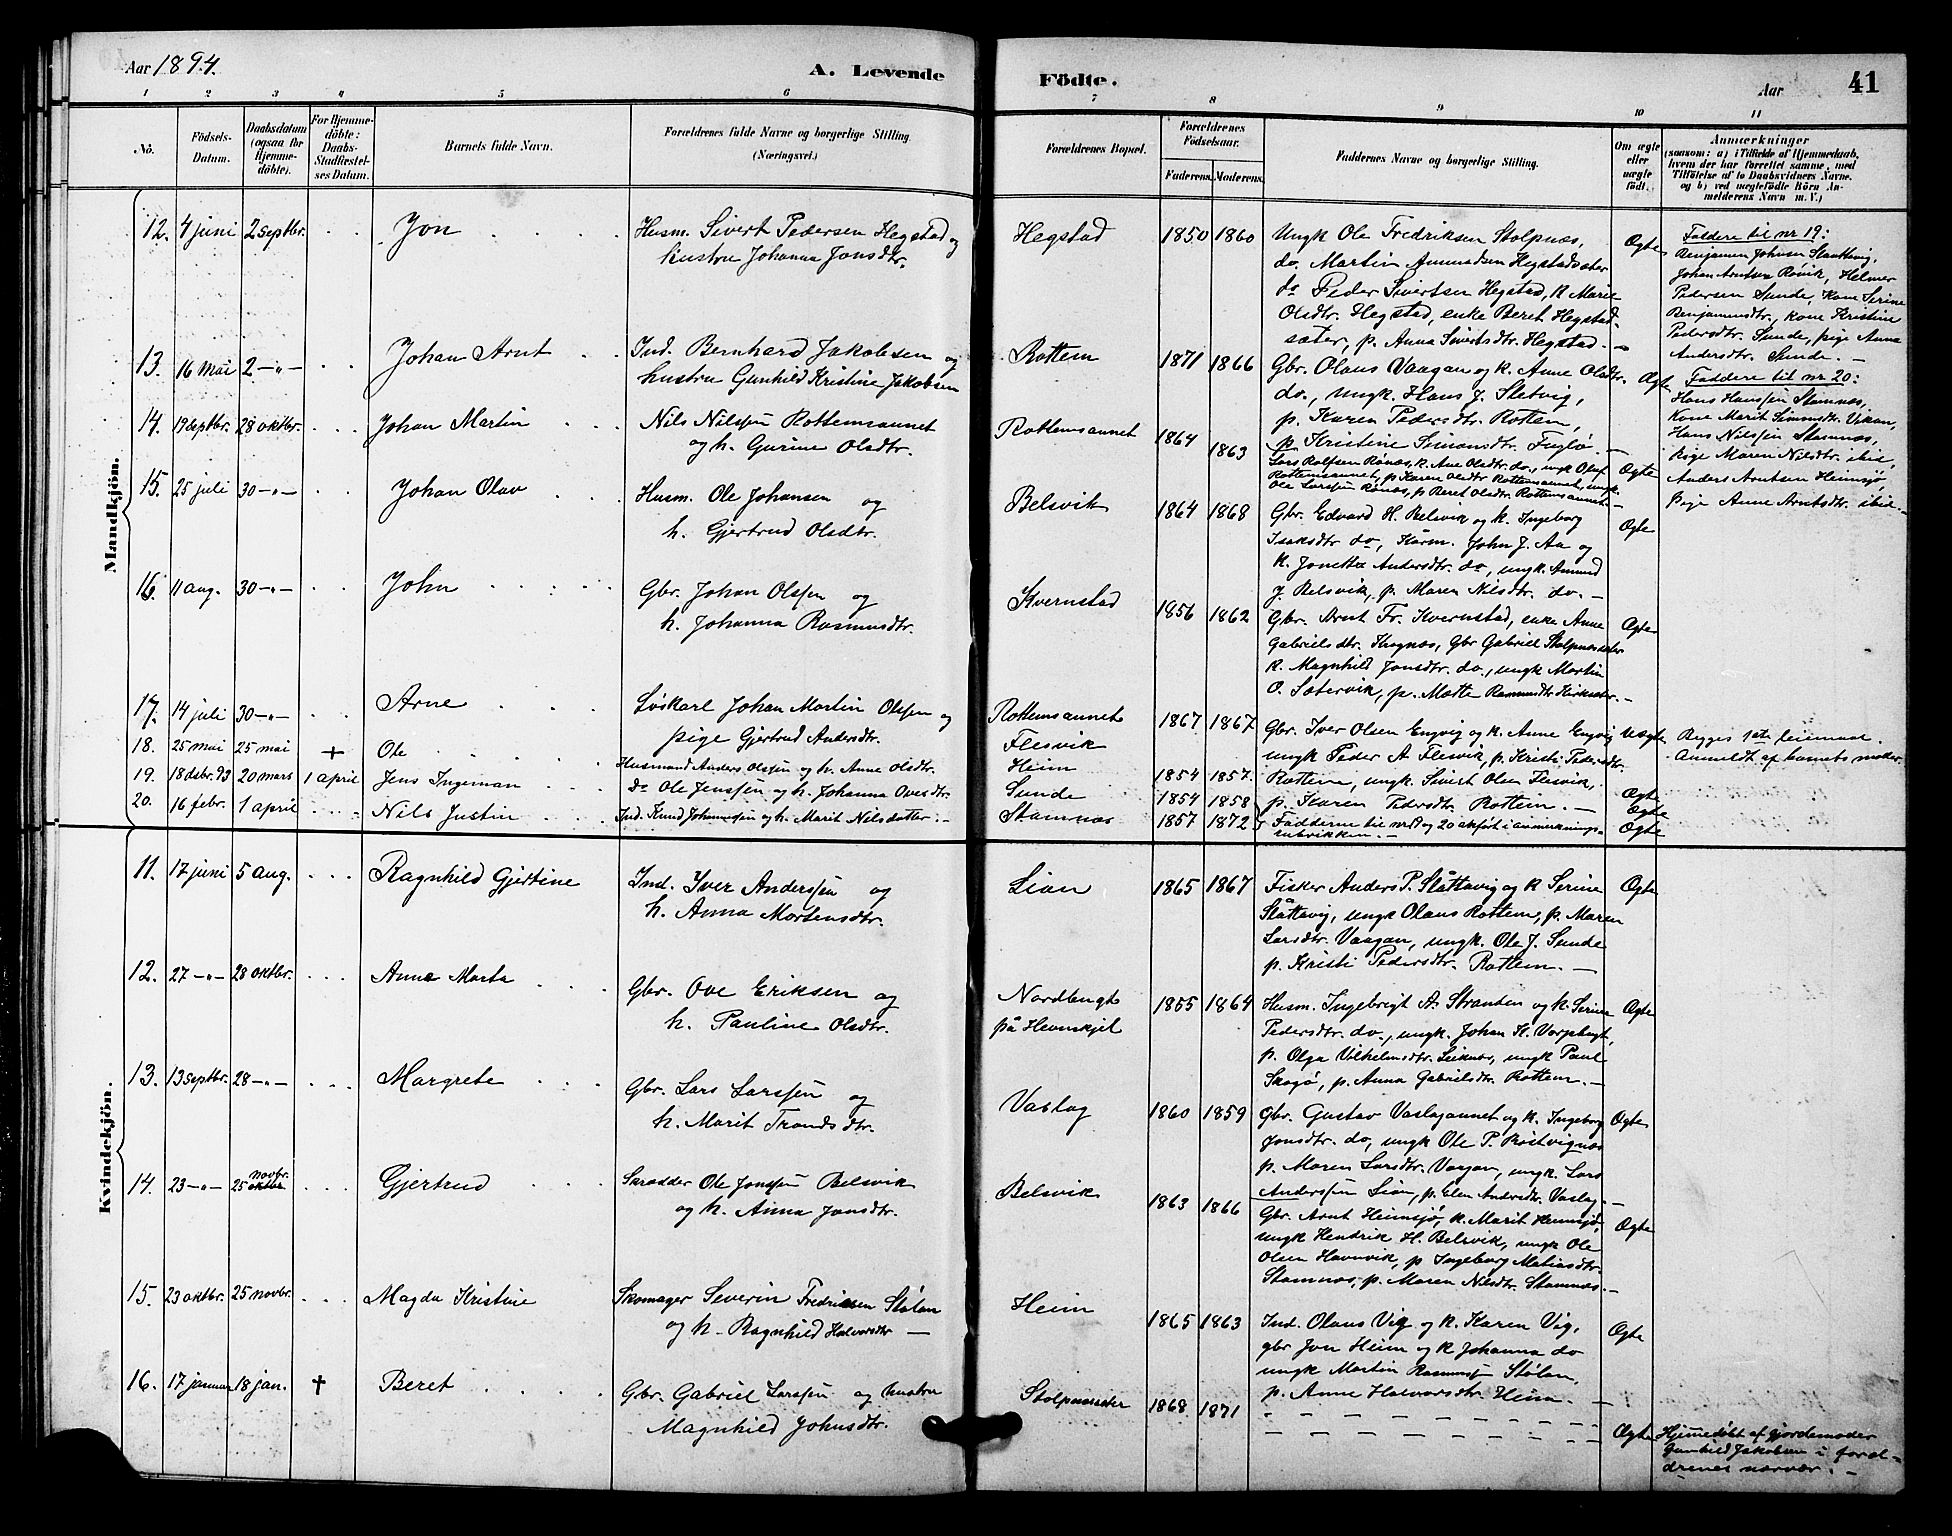 Aar 1894.
A. Levende
Födte.
Aar
41
1 2 3 4 5 6 7 8 9 10 11
No.
Födsels-
Datum.
Daabsdatum
(ogsaa for
Hjemme-
döbte).
For Hjemme-
döbte:
Daabs-
Stadfæstel-
ses Datum.
Barnets fulde Navn.
Forældrenes fulde Navne og borgerlige Stilling.
(Næringsvei.)
Forældrenes Bopæl.
Forældrenes
Födselsaar.
Faderens. Moderens.
Faddernes Navne og borgerlige Stilling.
Om ægte
eller
uægte
födt.
Anmærkninger
(saasom: a) i Tilfælde af Hjemmedaab,
hvem der har forrettet samme, med
Tilföielse af to Daabsvidners Navne.
og b) ved uægtefödte Börn An-
melderens Navn m. V.)
Mandkjön.
12. 4 juni 2 septbr. Jon
Husm. Sivert Pedersen Hegstad og
hustru Johanna Jonsdtr.
Hegstad 1850 1860
Ungk Ole Fredriksen Stolpnæs,
do. Martin Amundsen Hegstadsæter
do Peder Sivertsen Hegstad, k Marie
Olsdtr. Hegstad, enke Beret Hegstad-
sæter, p. Anna Sivertsdtr. Hegstad. —
Ægte
Faddere til nr 19:
Benjamin Johnsen Slaattavig,
Johan Arntsen Røvik, Helmer
Pedersen Sunde, Kone Serine
Benjaminsdtr., kone Kristine
Pedersdtr. Sunde, pige Anna
Andersdtr. Sunde. —
13. 16 mai 2 -"- Johan Arnt
Ind. Bernhard Jakobsen og
hustru Gunhild Kristine Jakobsen
Rottem 1871 1866
Gbr. Olaus Vaagan og k. Anne Olsdtr.
do., ungk. Hans J. Sletvig,
p. Karen Pedersdtr. Rottem,
p. Kristine Simonsdtr. Fuglø. —
Ægte
Faddere til nr. 20:
Hans Hanssen Stamnæs,
Kone Marit Simonsdtr. Vikan,
Hans Nilssen Stamnæs,
Pige Maren Nilsdtr. ibid,
Anders Arntsen Heimsjø,
pige Anne Arntsdtr. ibid. —
14. 19 septbr. 28 oktbr. Johan Martin
Nils Nilssen Rottemsaunet
og h. Gurine Olsdtr.
Rottemsaunet 1864 1863
Lars Rolfsen Rønæs, k. Ane Olsdtr. do., ungk Oluf
Rottemsaunet, p Karen Olsdtr Rottemsaunet, ungk.
Ole Larssen Rønæs, p Beret Olsdtr. Rottemsaunet —
Ægte
15. 25 juli 30 -"- Johan Olav
Husm. Ole Johansen og
h. Gjertrud Olsdtr.
Belsvik 1864 1868
Gbr. Edvard H. Belsvik og k. Ingeborg
Isaksdtr do, Husm. John J. Aa og
k. Jonetta Andersdtr. do, ungk. Amund
J. Belsvik, p. Maren Nilsdtr. do. —
Ægte
16. 11 aug. 30 -"- John
Gbr. Johan Olssen og
h. Johanna Rasmusdtr.
Kvernstad 1856 1862
Gbr. Arnt Fr. Kvernstad, enke Anne
Gabrielsdtr. Krognæs, Gbr Gabriel Stolpnæsseter
k. Magnhild Jonsdtr. do., ungk Martin
O. Sætervik, p. Mætte Rasmusdtr. —
Ægte
17. 14 juli 30 -"- Arne
Løskarl Johan Martin Olssen og
pige Gjertrud Andersdtr.
Rottemsaunet 1867 1867
Gbr. Iver Olsen Engvig og k. Anne Engvig
ungk Peder A Flesvik, p. Kristi Pedersdtr.
Rottem, ungk. Sivert Olsen Flesvik,
p. Karen Pedersdtr. Rottem. —
Uægte
Begges 1ste leiemaal.
Anmeldt af barnets moder.
18. 25 mai 25 mai + Ole
Husmand Anders Olssen og h. Anne Olsdtr.
Flesvik 1854 1857.
Ægte
19. 18 dsbr. 93 20 mars 1 april Jens Ingeman
do Ole Jenssen og h. Johanna Ovesdtr.
Heim
Sunde 1854 1858
Ægte
20. 16 febr. 1 april Nils Justin
Ind. Knud Johannessen og h. Marit Nilsdatter. —
Stamnæs 1857 1872
Fadderne til nr. 19 og 20 anført i anmerknings-
rubrikken. —
Ægte
Kvindekjön.
11. 17 juni 5 aug. Ragnhild Gjertine
Ind. Iver Anderssen og
h. Anna Mortensdtr.
Lian 1865 1867
Fisker Anders P. Slåttavig og k Serine
Slåttavig, ungk Olaus Rottem, p. Maren
Larsdtr. Vaagan, ungk. Ole J. Sunde
p. Kristi Pedersdtr. Rottem. —
Ægte
12. 27 -"- 28 oktbr. Anne Marta
Gbr. Ove Eriksen og
h. Pauline Olsdtr.
Nordlengt
på Hevnskjel 1855 1864
Husm. Ingebrigt A. Stranten og k. Serine
Pedersdtr. do., ungk. Johan K. Vorpbugt,
p. Olga Vilhelmsdtr. Leiknæs, ungk Paul
Skogø, p. Anna Gabrielsdtr. Rottem. —
Ægte
13. 13 septbr. 28 -"- Margrete
Gbr. Lars Larssen og
h. Marit Trondsdtr.
Vaslag 1860 1859
gbr. Gustav Vaslagaunet og k. Ingeborg
Jonsdtr. do, ungk Ole P. Røstvignæs
p. Maren Larsdtr. Vaagan, ungk. Lars
Anderssen Lian, p. Elen Andersdtr. Vaslag. —
Ægte
14. 23 -"- 25 oktbr novbr. Gjertrud
Skrædder Ole Jonssen Belsvik
og h. Anna Jonsdtr.
Belsvik 1863 1866
Gbr. Arnt Heimsjø, k. Marit Heimsjø,
ungk Hendrik H. Belsvik, ungk Ole
Olsen Havnvik, p Ingeborg Matiasdtr.
Stamnæs, p. Maren Nilsdtr. Stamnæs. —
Ægte
15. 23 oktbr. 25 novbr. Magda Kristine
Skomager Severin Fredriksen Stølan
og h. Ragnhild Halvorsdtr —
Heim 1865 1863
Ind. Olaus Vig og k. Karen Vig,
gbr Jon Heim og k Johanna do
ungk Martin Rasmussen Stølan,
p. Anne Halvorsdtr. Heim. —
Ægte
16. 17 januar 18 jan. + Beret
Gbr. Gabriel Larssen og hustru
Magnhild Johnsdtr.
Stolpnæsseter 1868 1871
Ægte
Hjemmedøbt af gjordemoder
Gunhild Jakobsen i foræl-
drenes nærvær. —